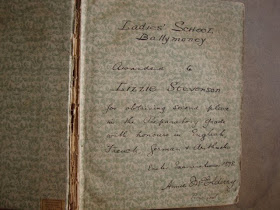 Ladies' School,
Ballymoney
Awarded to
Lizzie Stevenson
for obtaining second place
in the Preparatory Grade
with honours in English,
French, German &
Examination